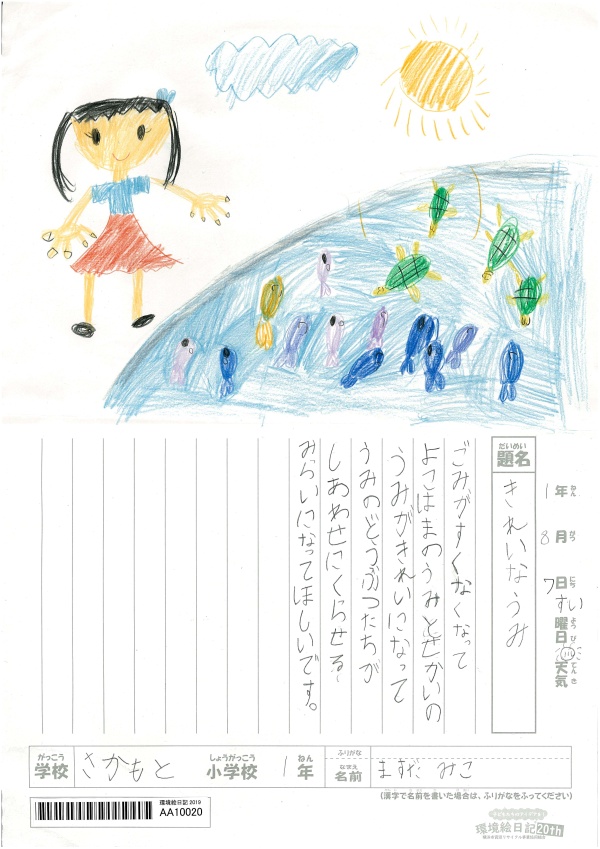 だいめい
題名
きれいなうみ
1年 ねん
8月 がつ
7日 にち
すい曜日 ようび
天気 てんき
ごみがすくなくなって
よこはまのうみとせかいの
うみがきれいになって
うみのどうぶつたちが
しあわせにくらせる
みらいになってほしいです。
がっこう しょうがっこう ねん
学校 さかもと 小学校 1年
ふりがな
なまえ
名前 ますだ みこ
(漢字で名前を書いた場合は、ふりがなをふってください)
環境絵日記 2019
AA10020
環境絵日記20th